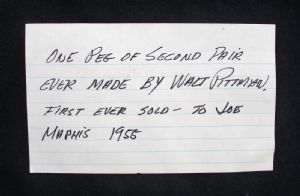 ONE PEG OF SECOND PAIR
EVER MADE BY WALT PITTMAN.
FIRST EVER SOLD – TO JOE
MAPHIS 1956